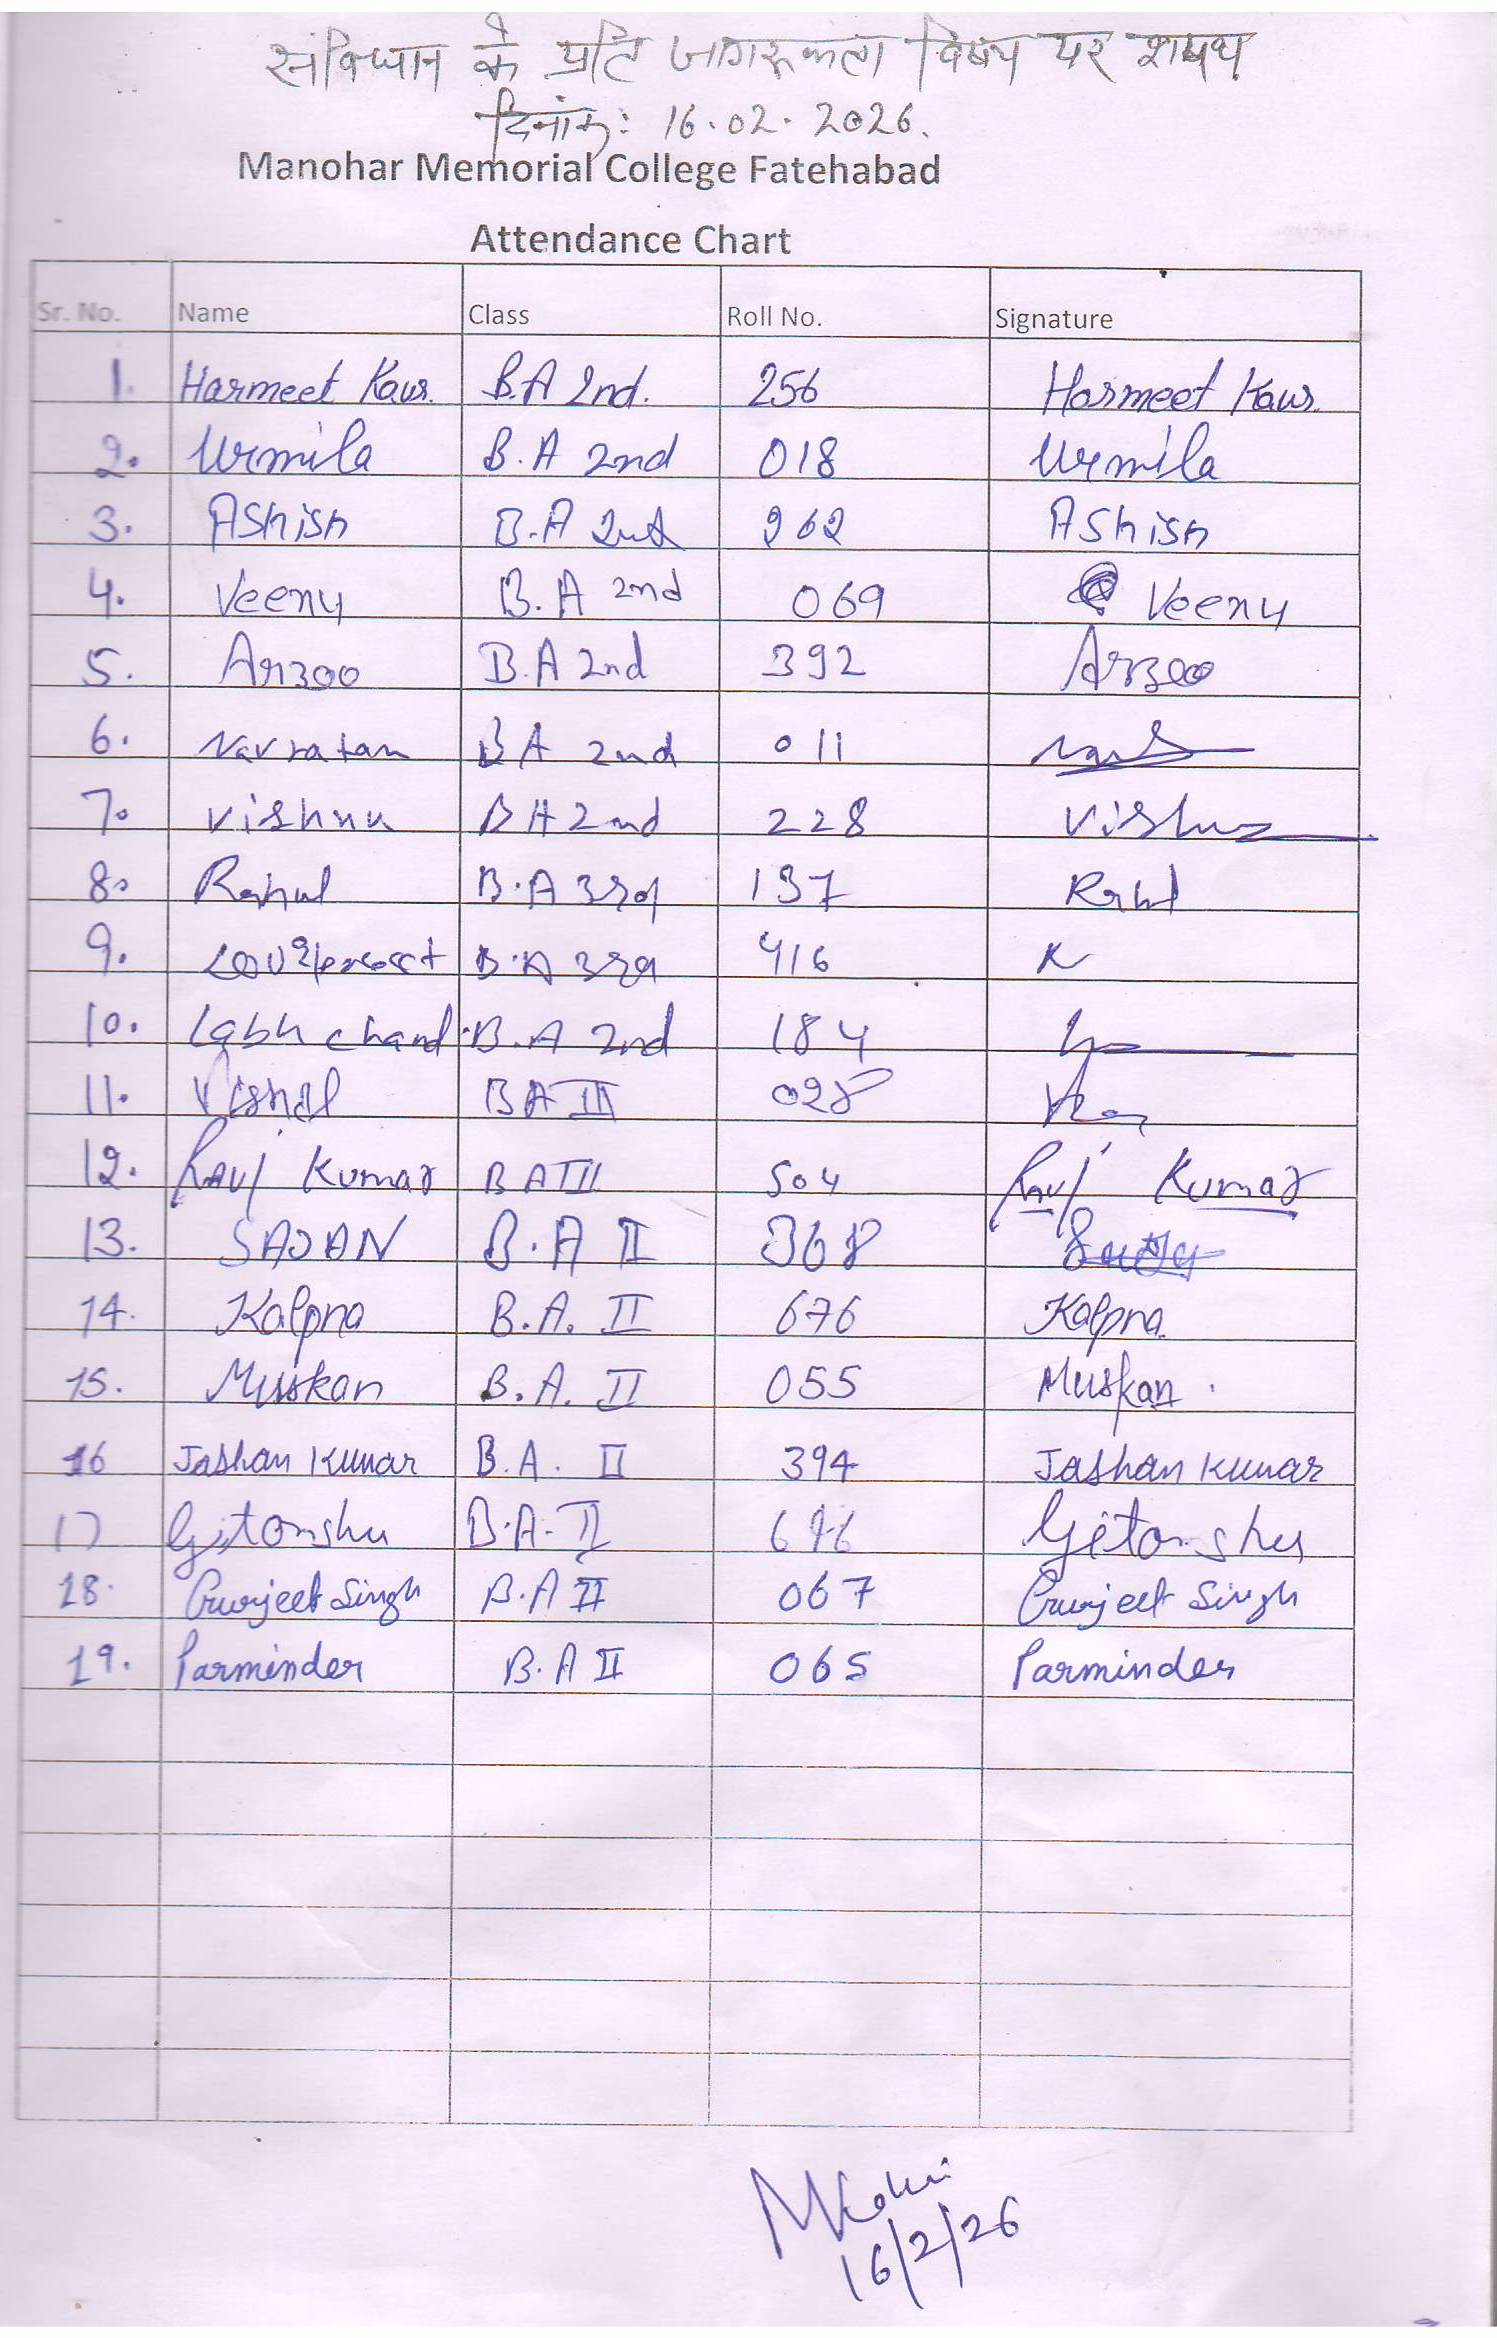 संविधान के प्रति जागरूकता विषय पर शपथ
दिनांक: 16.02.2026.
Manohar Memorial College Fatehabad
Attendance Chart
Sr. No. Name Class Roll No. Signature
1. Harmeet Kaur. B.A 2nd. 256 Harmeet Kaur.
2. Urmila B.A 2nd 018 Urmila
3. AShish B.A 2nd 262 AShish
4. Veenu B.A 2nd 069 Veenu
5. Arzoo B.A 2nd 392 Arzoo
6. Navratan BA 2nd 011
7. Vishnu BA 2nd 228 Vishnu
8. Rahul B.A 3rd 137 Rahul
9. B.A 3rd 416
10. Labh chand B.A 2nd 184
11. Vishal BA III 028
12. Ravi Kumar BA III 504 Ravi Kumar
13. SAJAN B.A II 368
14. Kalpna B.A. II 676 Kalpna
15. Muskan B.A. II 055 Muskan.
16 Jashan Kumar B.A. II 394 Jashan Kumar
17 Gitanshu B.A. II Gitanshu
18. Gurjeet Singh B.A II 067 Gurjeet Singh
19. Parminder B.A II 065 Parminder
16/2/26